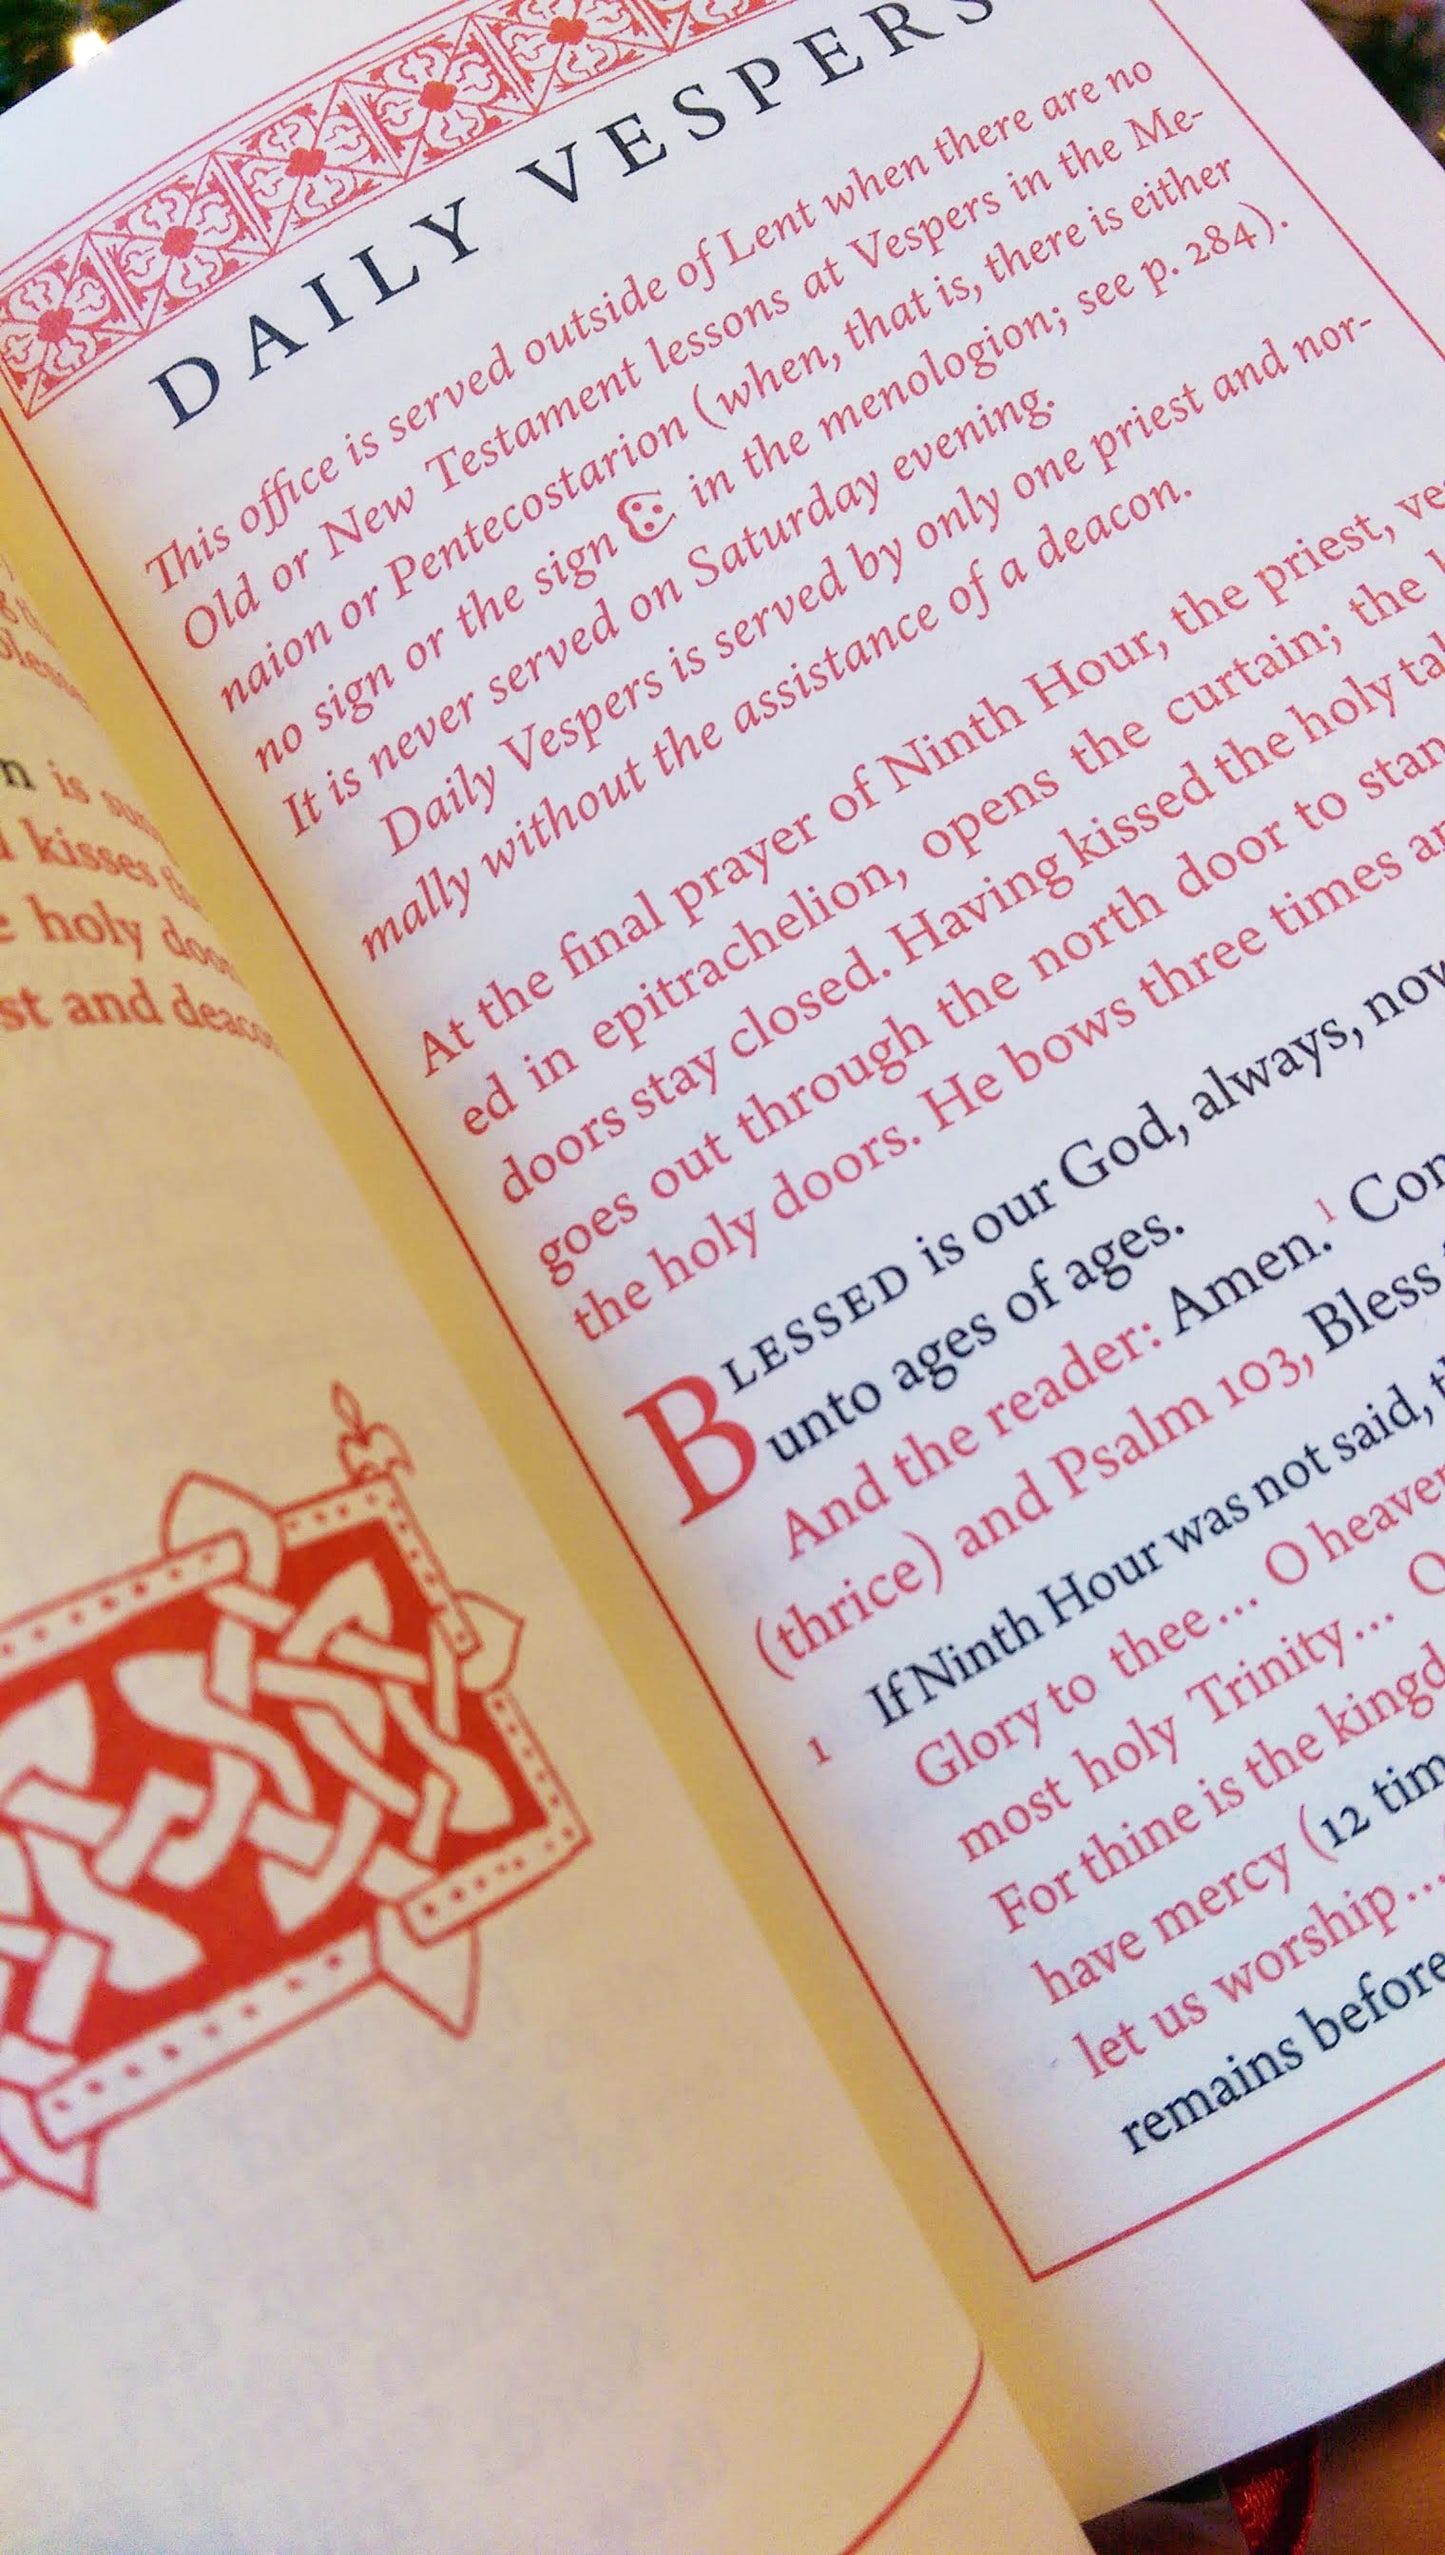 n is
kisses
holy
st and
DAILY VESPERS
This office is served outside of Lent when there are no
Old or New Testament lessons at Vespers in the Me-
naion or Pentecostarion (when, that is, there is either
no sign or the sign in the menologion; see p. 284).
It is never served on Saturday evening.
Daily Vespers is served by only one priest and nor-
mally without the assistance of a deacon.
At the final prayer of Ninth Hour, the priest,
ed in epitrachelion, opens the curtain; the
doors stay closed. Having kissed the holy
goes out through the north door to
the holy doors. He bows three times
BLESSED is our God, always,
unto ages of ages.
And the reader: Amen.1
(thrice) and Psalm 103, Bless
1 If Ninth Hour was not said,
Glory to thee... O
most holy Trinity... O
For thine is the
have mercy (12
let us worship...
remains before